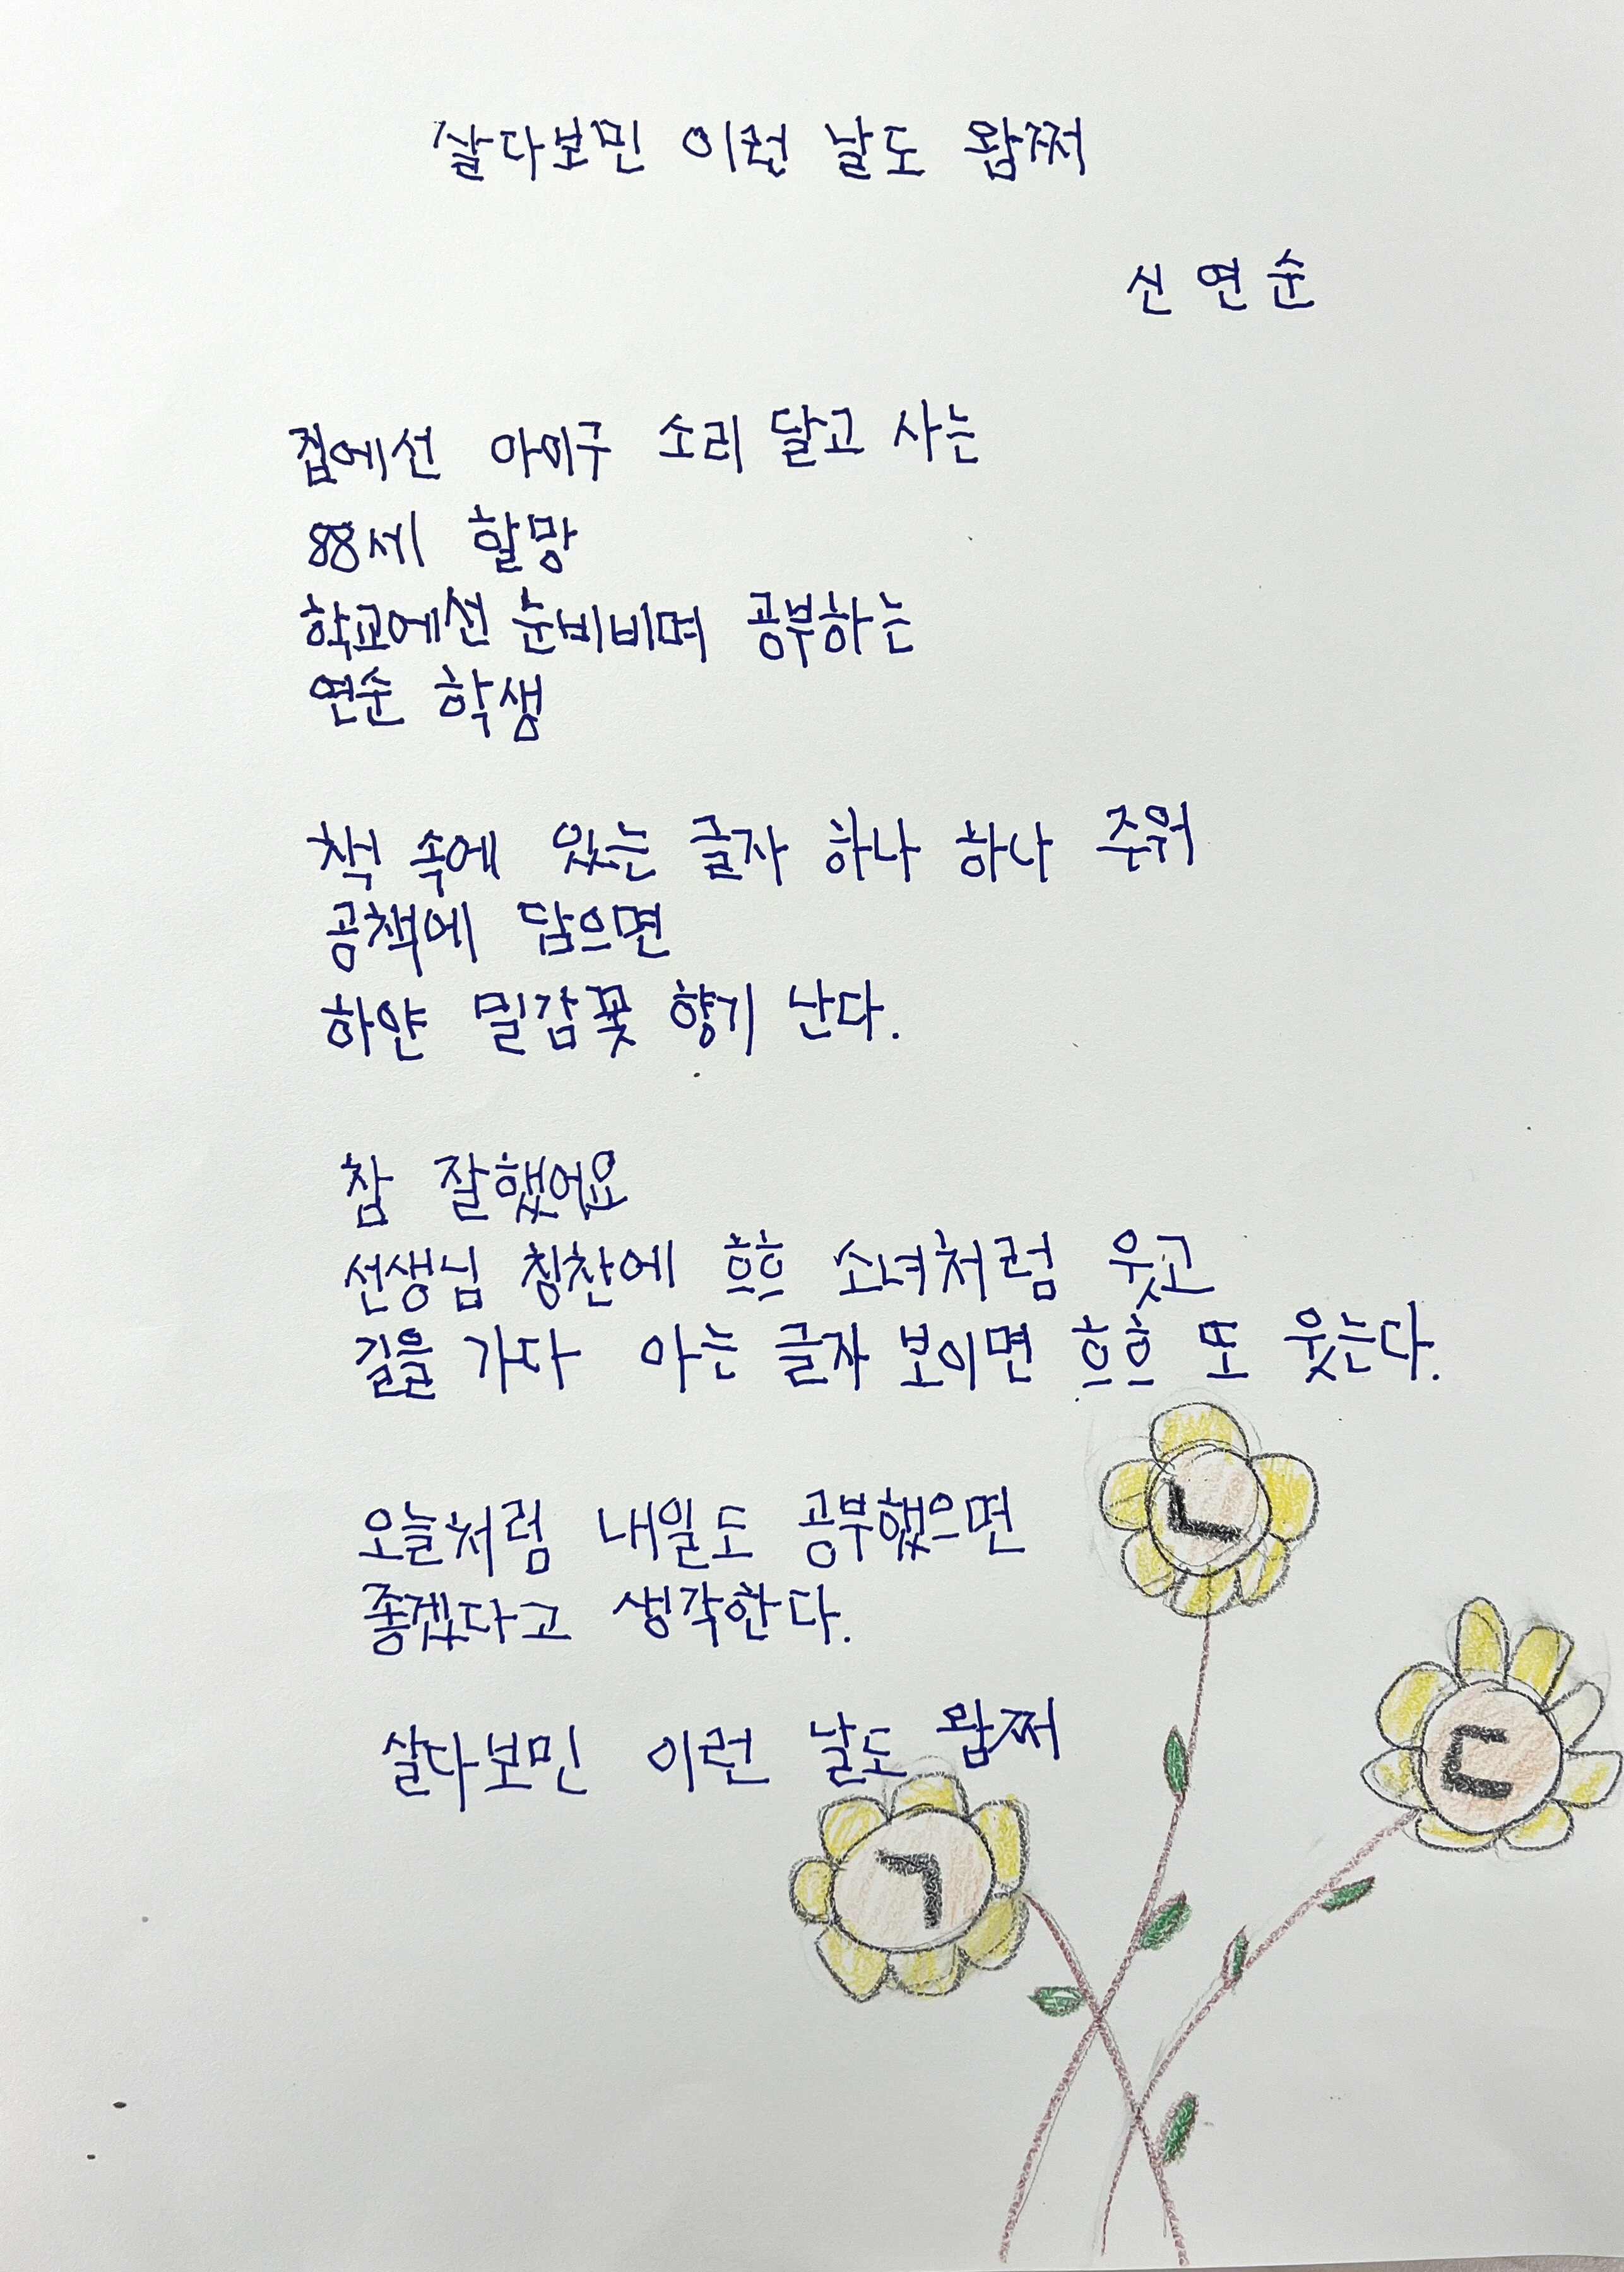 살다보민 이런 날도 왐쩌
신연순
집에선 아이구 소리 달고 사는
88세 할망
학교에선 눈비비며 공부하는
연순 학생
책 속에 있는 글자 하나 하나 주워
공책에 담으면
하얀 밀감꽃 향기 난다.
참 잘했어요
선생님 칭찬에 흐흐 소녀처럼 웃고
길을 가다 아는 글자 보이면 흐흐 또 웃는다.
오늘처럼 내일도 공부했으면
좋겠다고 생각한다.
살다보민 이런 날도 왐쩌
ㄴ
ㄷ
ㄱ